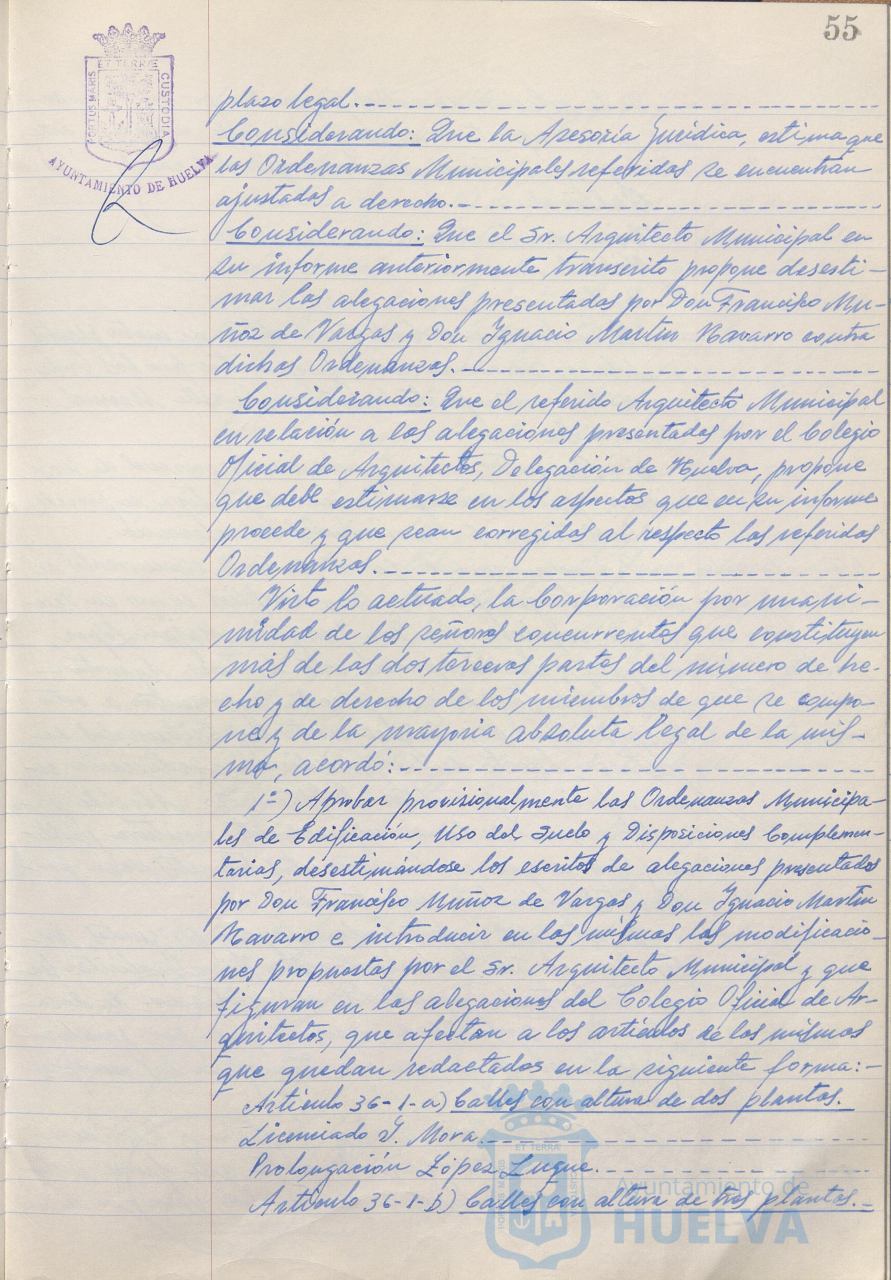 55
ET TERRÆ
PORTUS MARIS
CUSTODIA
AYUNTAMIENTO DE HUELVA
plazo legal.
Considerando: Que la Asesoría Jurídica, estima que
las Ordenanzas Municipales referidas se encuentran
ajustadas a derecho.
Considerando: Que el Sr. Arquitecto Municipal en
su informe anteriormente transcrito propone desesti-
mar las alegaciones presentadas por Don Francisco Mu-
ñoz de Vargas y Don Ignacio Martín Navarro contra
dichas Ordenanzas.
Considerando: Que el referido Arquitecto Municipal
en relación a las alegaciones presentadas por el Colegio
Oficial de Arquitectos, Delegación de Huelva, propone
que debe estimarse en los aspectos que en su informe
procede y que sean corregidas al respecto las referidas
Ordenanzas.
Visto lo actuado, la Corporación por unani-
midad de los señores concurrentes que constituyen
más de las dos terceras partes del número de he-
cho y de derecho de los miembros de que se compo-
ne y de la mayoría absoluta legal de la mis-
ma, acordó:
1º) Aprobar provisionalmente las Ordenanzas Municipa-
les de Edificación, Uso del Suelo y Disposiciones Complemen-
tarias, desestimándose los escritos de alegaciones presentados
por Don Francisco Muñoz de Vargas y Don Ignacio Martín
Navarro e introducir en las mismas las modificacio-
nes propuestas por el Sr. Arquitecto Municipal y que
figuran en las alegaciones del Colegio Oficial de Ar-
quitectos, que afectan a los artículos de las mismas
que quedan redactados en la siguiente forma:-
Artículo 36-1-a) Calles con altura de dos plantas.
Licenciado J. Mora.
Prolongación López Luque.
Artículo 36-1-b) Calles con altura de tres plantas.
ET TERRA
Ayuntamiento de
HUELVA